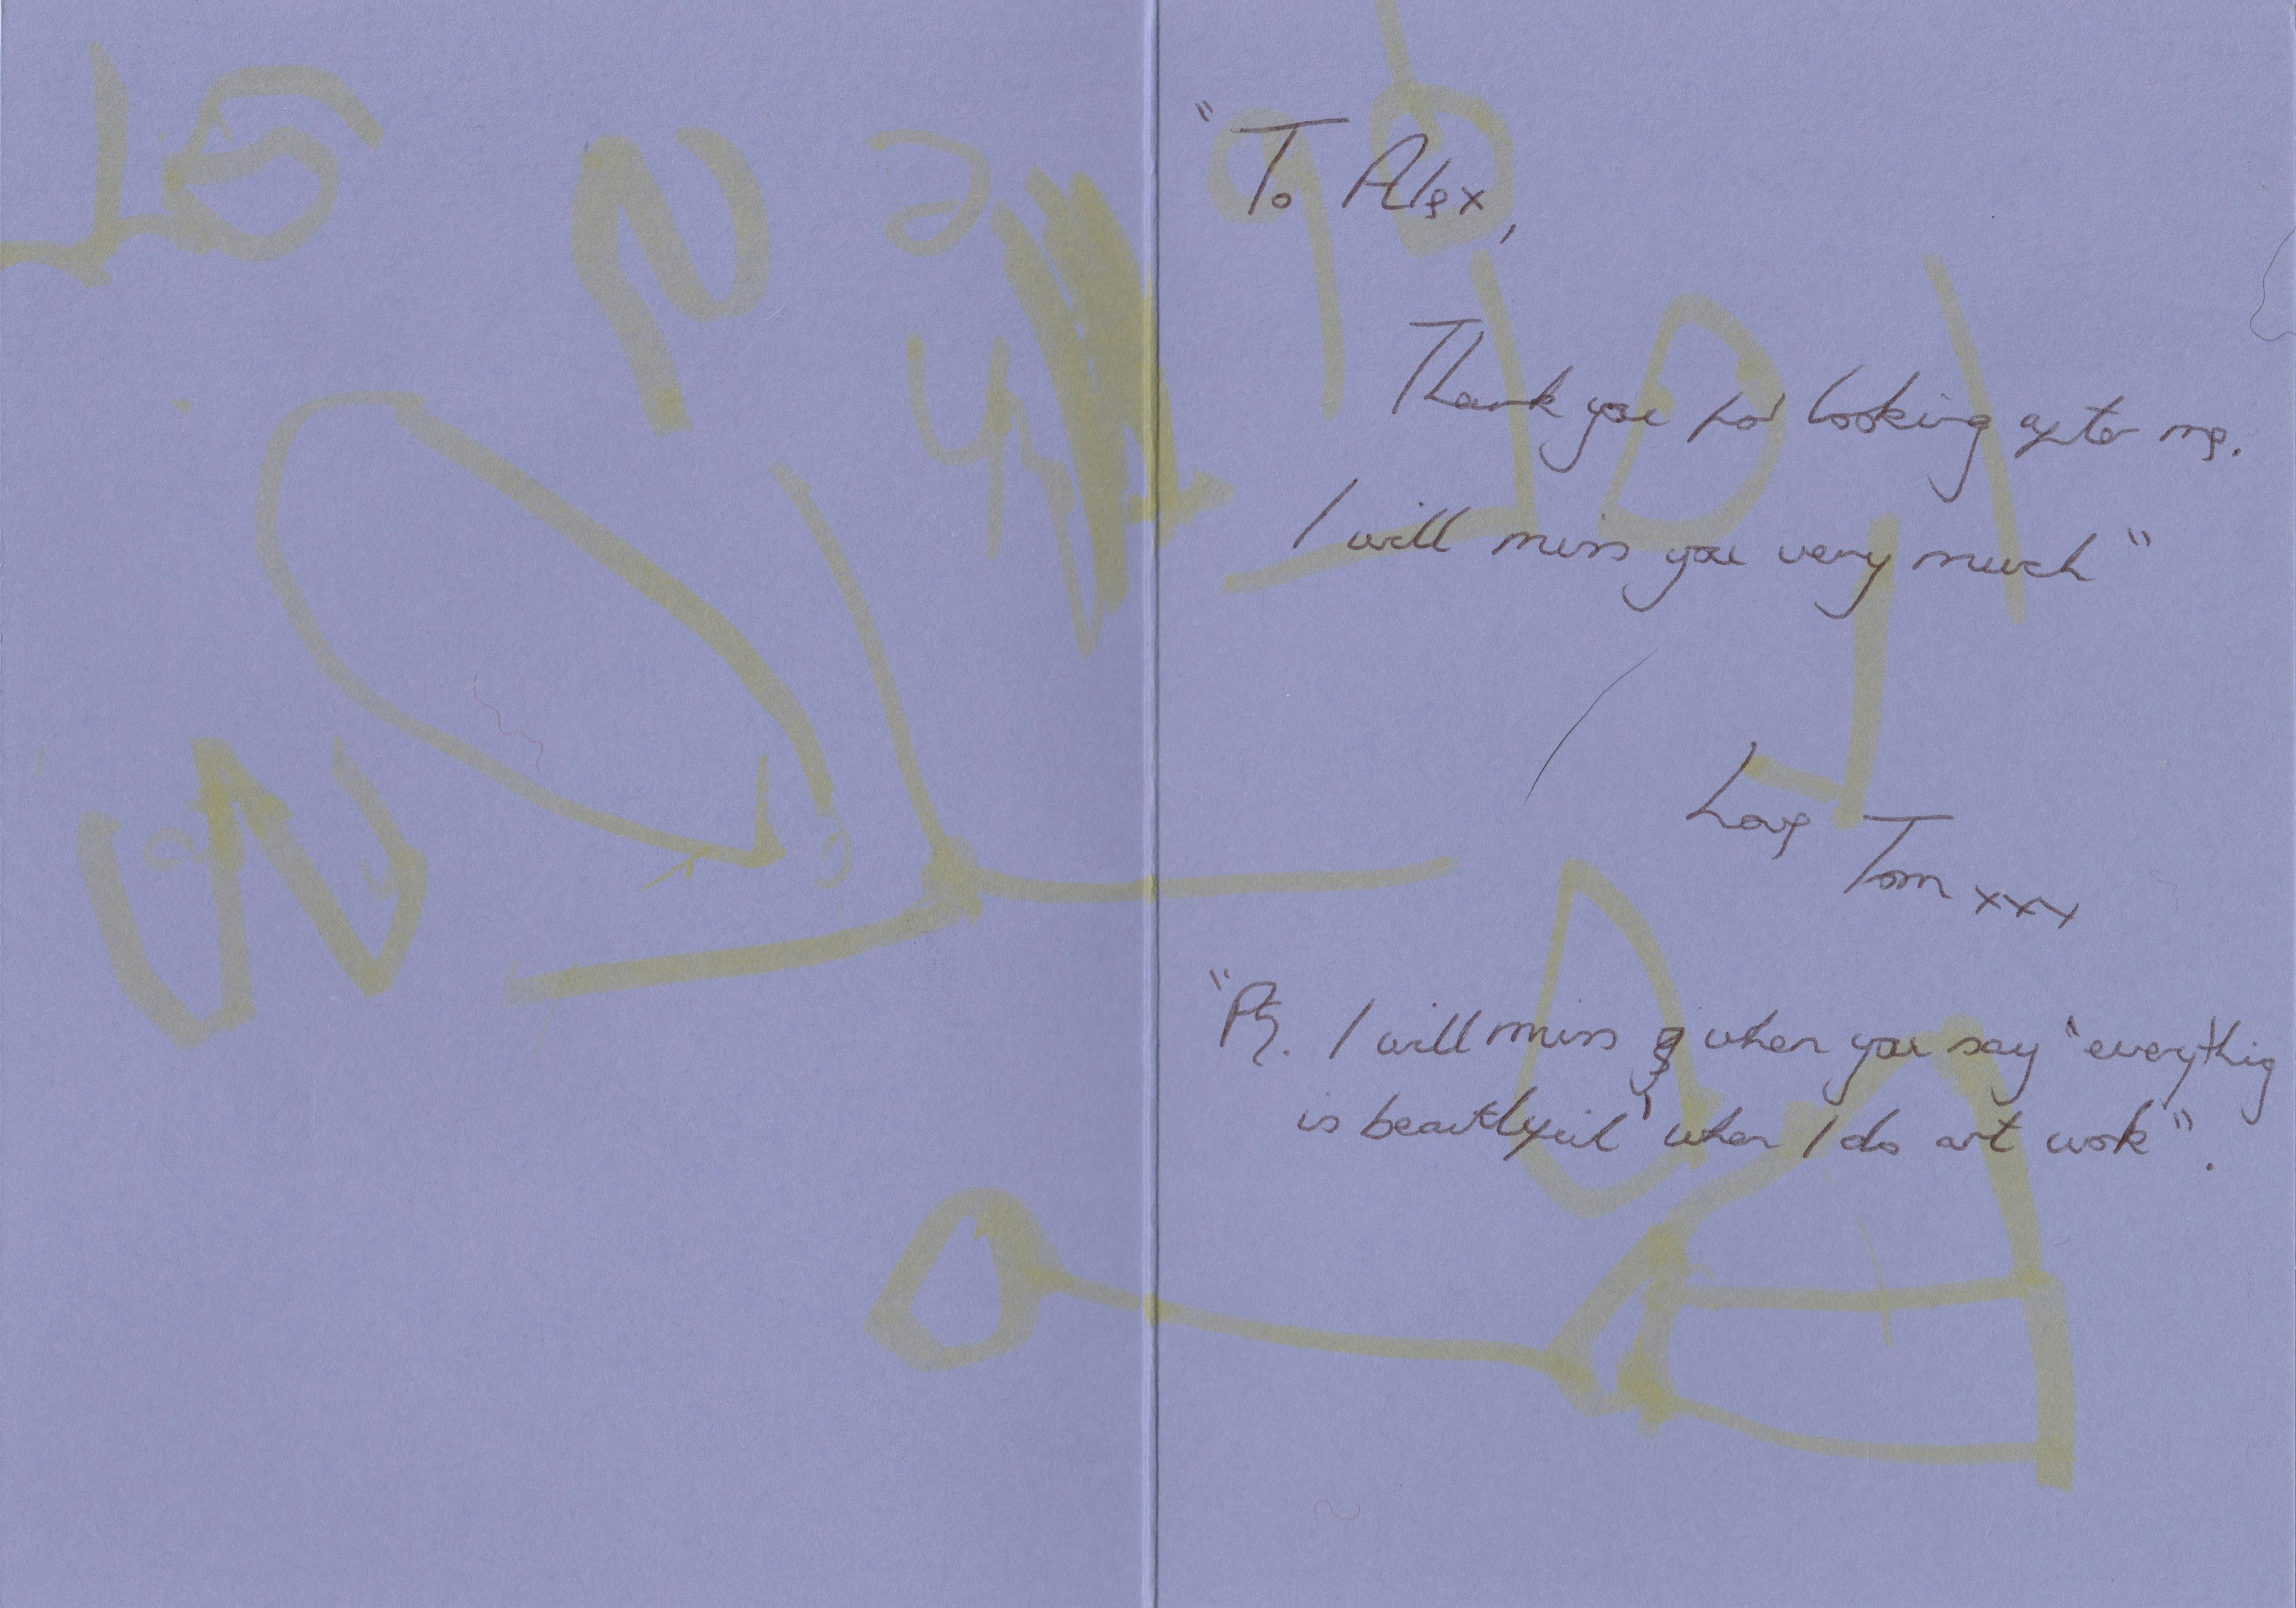 "To Alex,
Thank you for looking after me.
I will miss you very much"
Love Tom xxx
"Ps. I will miss when you say "everythig
is beautyful" when I do art work".